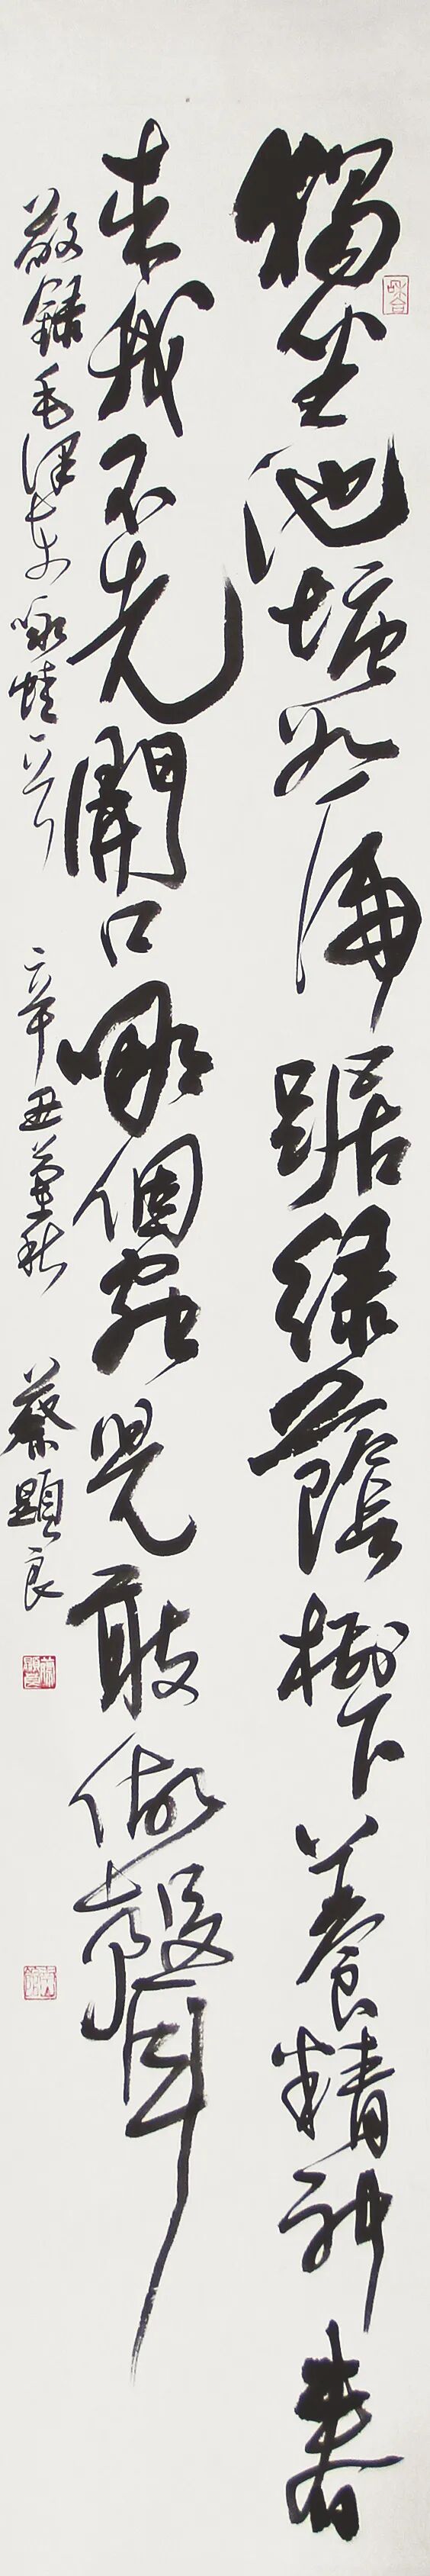 獨坐池塘如虎踞綠蔭樹下養精神春
來我不先開口哪個蟲兒敢做聲
敬錄毛澤東詠蛙一首 辛丑 秋 蔡顯良